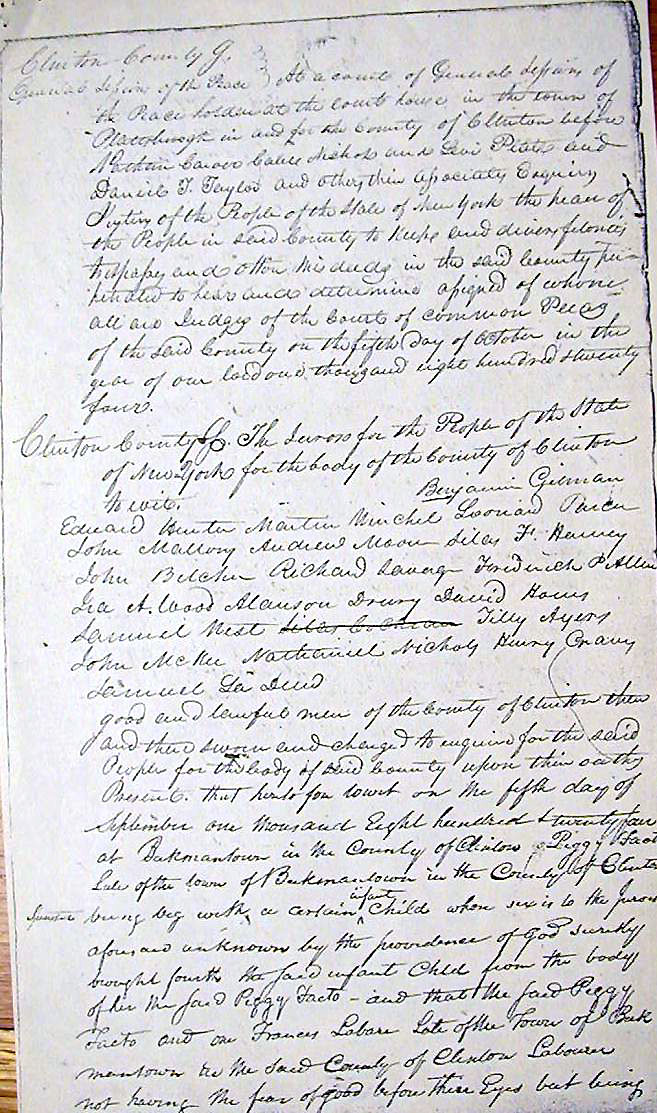 Clinton County G.
General Sessions of the Peace At a court of General Sessions of
the Peace holden at the court house in the town of
Plattsburgh in and for the County of Clinton before
Nathan Carver Caleb Nichols and Levi Platt and
Daniel T. Taylor and others their associates Esquires
Justices of the People of the State of New York the peace of
the People in said County to keep and divers felonies
trespasses and other Misdeeds in the said County per-
petrated to hear and determine assigned of whom
all are Judges of the Court of common Pleas
of the said County on the fifth day of October in the
year of our lord one thousand eight hundred & twenty
four.
Clinton County ss. The Jurors for the People of the State
of New York for the body of the County of Clinton
to wit. Benjamin Gilman
Edward Hunter Martin Winchel Leonard
John Mallory Andrew Moore Silas F. Harvey
John Belcher Richard Savage Frederick P Allen
Ira A. Wood Alanson Drury David Hows
Samuel West Silas Cochran Tilly Ayers
John McKee Nathaniel Nichols Henry Cravy
Samuel La Deed
good and lawful men of the County of Clinton then
and there sworn and charged to enquire for the said
People for the body of said County upon their oaths
Present. that heretofore towit on the fifth day of
September one thousand Eight hundred & twenty four
at Beekmantown in the County of Clinton Peggy Facto
Late of the town of Beekmantown in the County of Clinton
Spinster being big with a certain infant Child whose sex is to the Jurors
aforesaid unknown by the providence of God secretly
brought fourth the said infant Child from the body
of her the said Peggy Facto - and that the said Peggy
Facto and one Frances Labare Late of the Town of Beek
mantown in the said County of Clinton Labourer
not having the fear of good before there Eyes but being